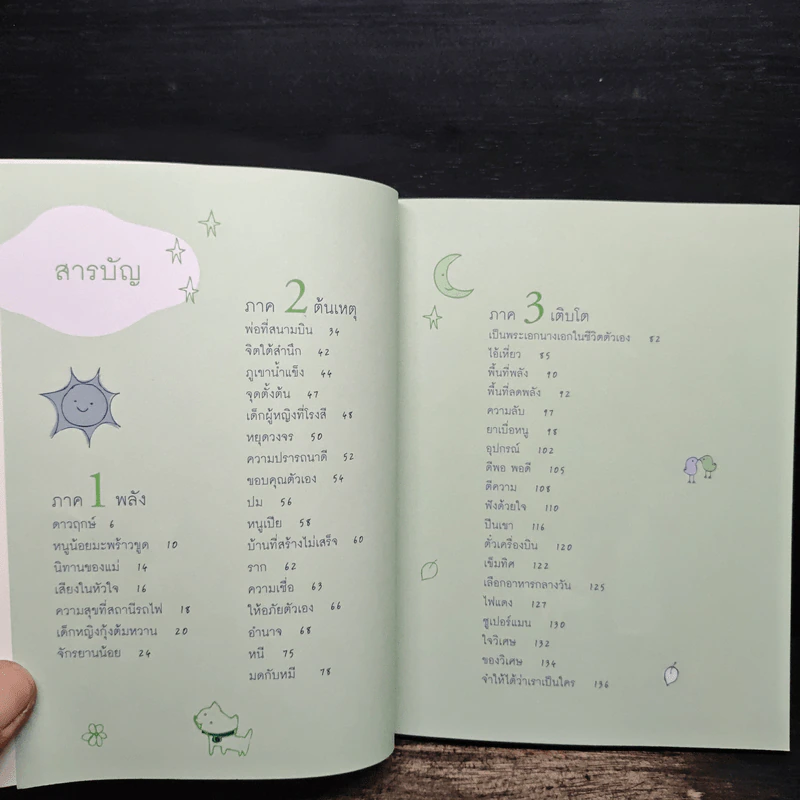 สารบัญ
ภาค 1 พลัง
ดาวฤกษ์ 6
หนูน้อยมะพร้าวขูด 10
นิทานของแม่ 14
เสียงในหัวใจ 16
ความสุขที่สถานีรถไฟ 18
เด็กหญิงกุ้งต้มหวาน 20
จักรยานน้อย 24
ภาค 2 ต้นเหตุ
พ่อที่สนามบิน 34
จิตใต้สำนึก 42
ภูเขาน้ำแข็ง 44
จุดตั้งต้น 47
เด็กผู้หญิงที่โรงสี 48
หยุดวงจร 50
ความปรารถนาดี 52
ขอบคุณตัวเอง 54
ปม 56
หนูเปีย 58
บ้านที่สร้างไม่เสร็จ 60
ราก 62
ความเชื่อ 63
ให้อภัยตัวเอง 66
อำนาจ 68
หนี 75
มดกับหมี 78
ภาค 3 เติบโต
เป็นพระเอกนางเอกในชีวิตตัวเอง 82
ไอ้เหี่ยว 85
พื้นที่พลัง 90
พื้นที่ลดพลัง 92
ความลับ 97
ยาเบื่อหนู 98
อุปกรณ์ 102
ดีพอ พอดี 105
ตีความ 108
ฟังด้วยใจ 110
ปีนเขา 116
ตั๋วเครื่องบิน 120
เข็มทิศ 122
เลือกอาหารกลางวัน 125
ไฟแดง 127
ซูเปอร์แมน 130
ใจวิเศษ 132
ของวิเศษ 134
จำให้ได้ว่าเราเป็นใคร 136